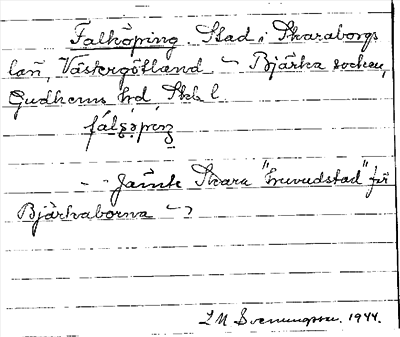 Falköping. Stad i Skaraborgs
län, Västergötland — Bjärka socken,
Gudhems hd, Skb l
fálsǫpeŋ
— Jämte Skara "huvudstad" för
Bjärkaborna —
Svenungsson. 1944.